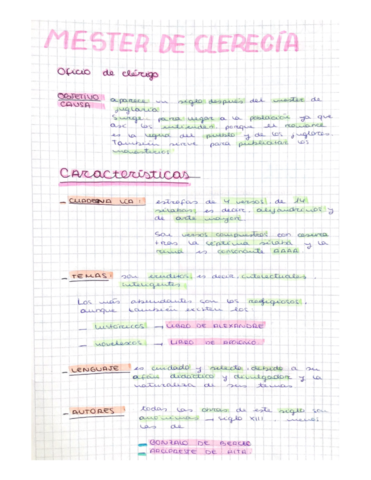 MESTER DE CLERECÍA
Oficio de clérigo
OBJETIVO aparece un siglo después del mester de
CAUSA juglaría.
Surge para llegar a la población ya que
así los entienden porque el romance
es la lengua del pueblo y de los juglares.
También sirve para publicitar los
monasterios
Características
- CUADERNA VÍA: estrofas de 4 versos de 14
sílabas, es decir, alejandrinos y
de arte mayor.
Son versos compuestos con cesura
tras la séptima sílaba y la
rima es consonante AAAA.
- TEMAS: son eruditos, es decir, intelectuales,
inteligentes.
Los más abundantes son los religiosos,
aunque también existen los
- históricos → LIBRO DE ALEXANDRE
- novelescos → LIBRO DE APOLONIO
- LENGUAJE: es cuidado y selecto debido a su
afán didáctico y divulgador y la
naturaleza de sus temas
- AUTORES: todas las obras de este siglo son
anónimas → siglo XIII, menos
las de
GONZALO DE BERCEO
ARCIPRESTE DE HITA